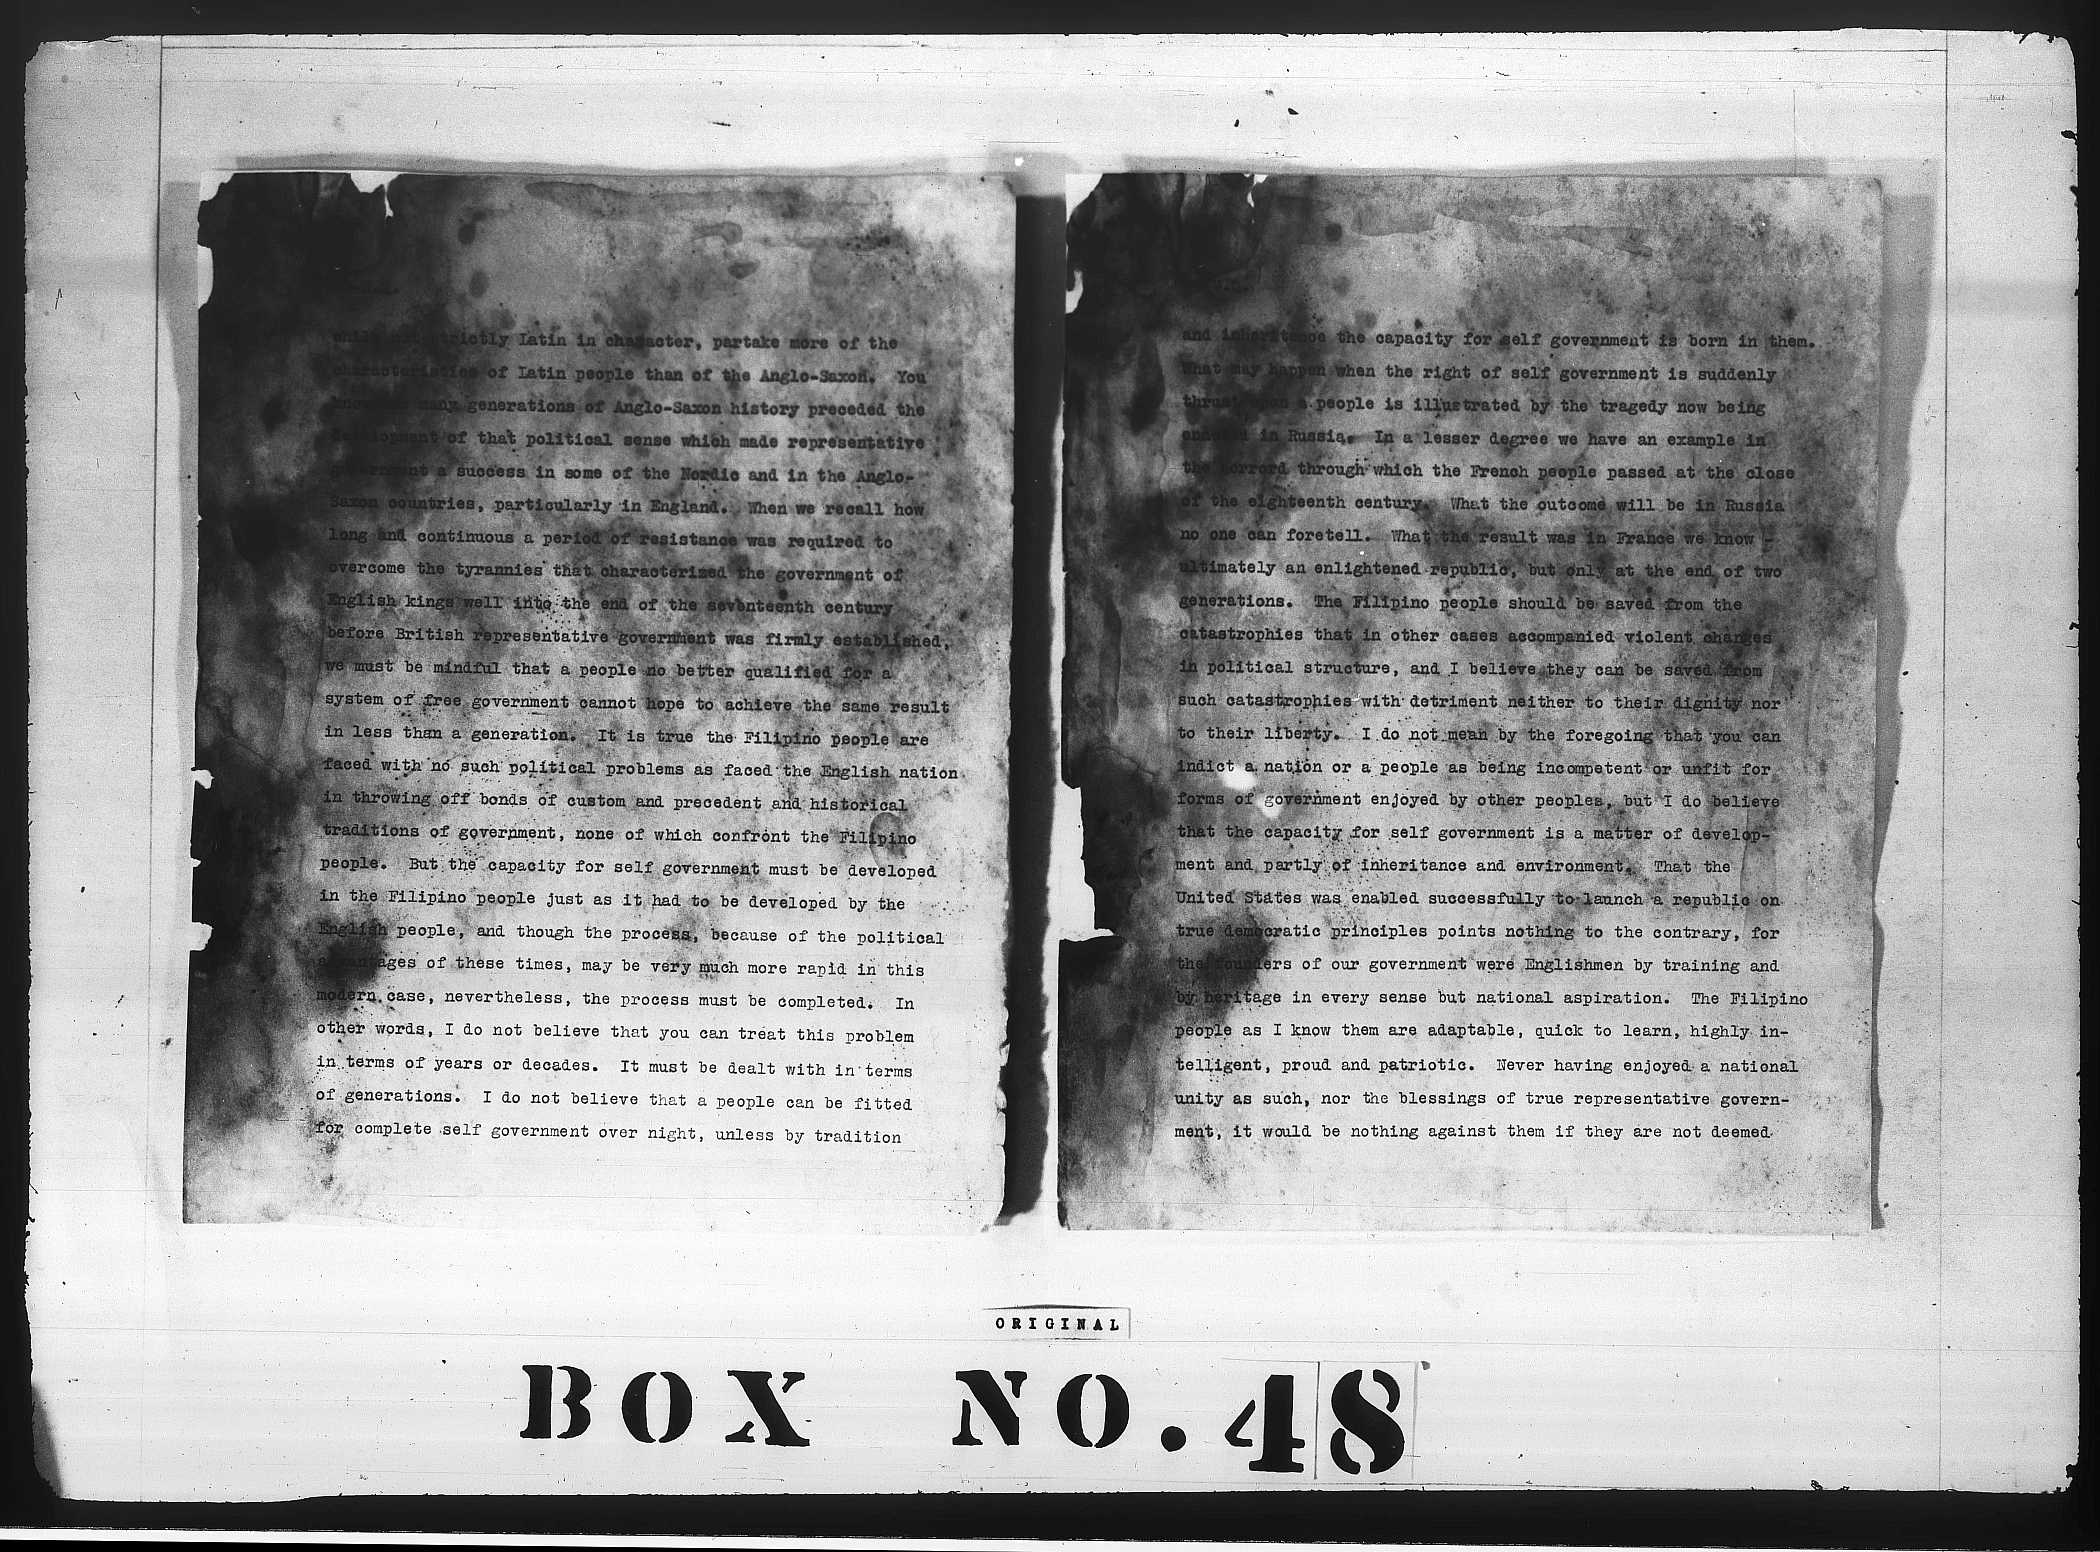 while not strictly Latin in character, partake more of the
characteristics of Latin people than of the Anglo-Saxon. You
know many generations of Anglo-Saxon history preceded the
development of that political sense which made representative
government a success in some of the Nordic and in the Anglo-
Saxon countries, particularly in England. When we recall how
long and continuous a period of resistance was required to
overcome the tyrannies that characterized the government of
English kings well into the end of the seventeenth century
before British representative government was firmly established,
we must be mindful that a people no better qualified for a
system of free government cannot hope to achieve the same result
in less than a generation. It is true the Filipino people are
faced with no such political problems as faced the English nation
in throwing off bonds of custom and precedent and historical
traditions of government, none of which confront the Filipino
people. But the capacity for self government must be developed
in the Filipino people just as it had to be developed by the
English people, and though the process, because of the political
advantages of these times, may be very much more rapid in this
modern case, nevertheless, the process must be completed. In
other words, I do not believe that you can treat this problem
in terms of years or decades. It must be dealt with in terms
of generations. I do not believe that a people can be fitted
for complete self government over night, unless by tradition
and inheritence the capacity for self government is born in them.
What may happen when the right of self government is suddenly
thrust upon a people is illustrated by the tragedy now being
enacted in Russia. In a lesser degree we have an example in
the horrord through which the French people passed at the close
of the eighteenth century. What the outcome will be in Russia
no one can foretell. What the result was in France we know -
ultimately an enlightened republic, but only at the end of two
generations. The Filipino people should be saved from the
catastrophies that in other cases accompanied violent changes
in political structure, and I believe they can be saved from
such catastrophies with detriment neither to their dignity nor
to their liberty. I do not mean by the foregoing that you can
indict a nation or a people as being incompetent or unfit for
forms of government enjoyed by other peoples, but I do believe
that the capacity for self government is a matter of develop-
ment and partly of inheritance and environment. That the
United States was enabled successfully to launch a republic on
true democratic principles points nothing to the contrary, for
the founders of our government were Englishmen by training and
by heritage in every sense but national aspiration. The Filipino
people as I know them are adaptable, quick to learn, highly in-
telligent, proud and patriotic. Never having enjoyed a national
unity as such, nor the blessings of true representative govern-
ment, it would be nothing against them if they are not deemed
ORIGINAL
BOX NO. 48